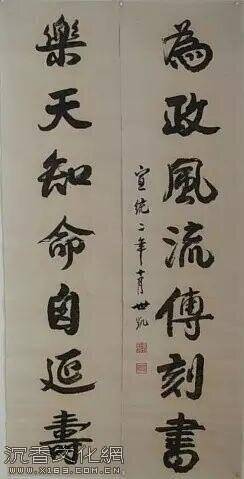 為政風流傳刻書
宣統二年十月世凱
樂天知命自延壽
沉香文化網
WWW.X163.COM.CN